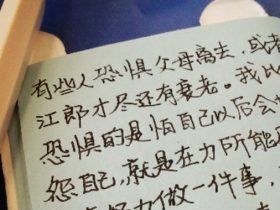 有些人恐惧父母离去，或
江郎才尽还有衰老。我
恐惧的是怕自己以后会
怨自己，就是在力所能
努力做一件事